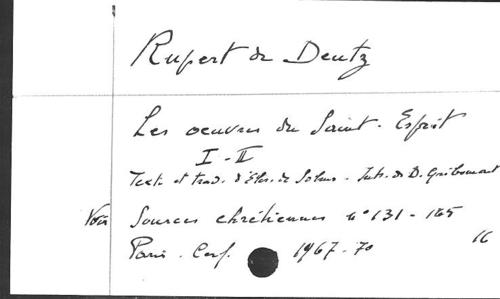 Rupert de Deutz
Les oeuvres du Saint-Esprit
I-II
Texte et trad. d'Elis. de Solms - Intr. de D. Gribomont
Voir Sources chrétiennes n° 131 - 165
Paris. Cerf. 1967-70 16